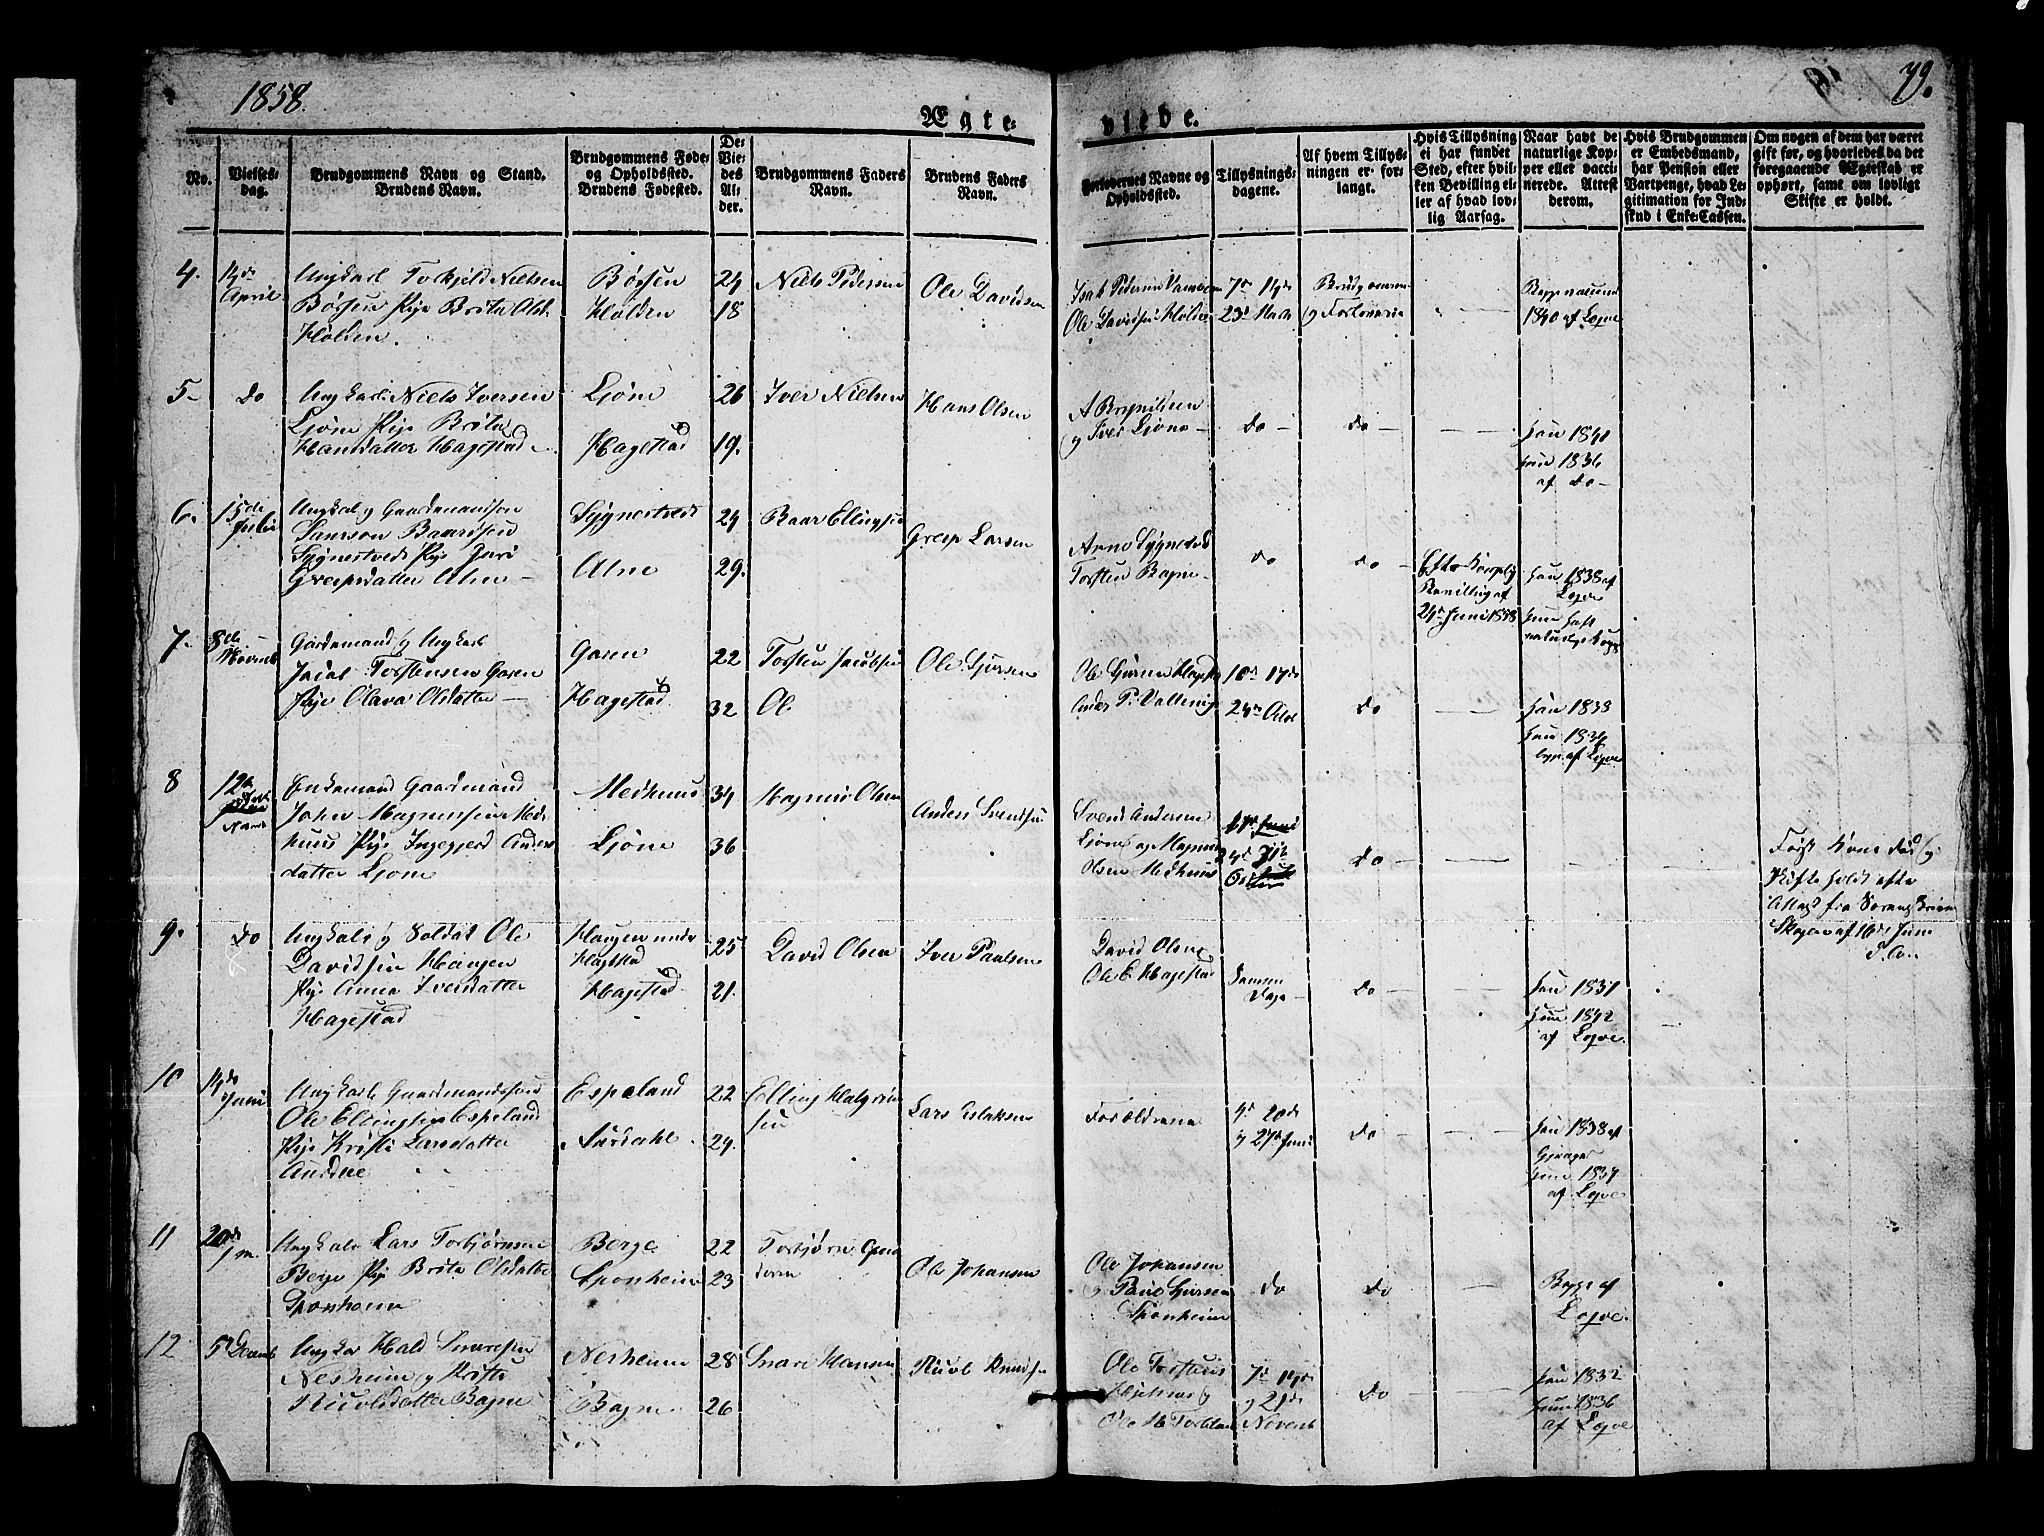 1858.
79.
Ægte-
viede.
No.
Vielses-
dag.
Brudgommens Navn og Stand.
Brudens Navn.
Brudgommens Føde-
og Opholdssted.
Brudens Fødested.
De
Vie-
des
Al-
der.
Brudgommens Faders
Navn.
Brudens Faders
Navn.
Forlovernes Navne og
Opholdssted.
Tillysnings-
dagene.
Af hvem Tillys-
ningen er for-
langt.
Hvis Tillysning
ei har fundet
Sted, efter hvil-
ken Bevilling el-
ler af hvad lov-
lig Aarsag.
Naar havt de
naturlige Kop-
per eller vacci-
nerede. Attest
derom.
Hvis Brudgommen
er Embedsmand,
har Pension eller
Vartpenge, hvad Le-
gitimation for Ind-
skud i Enke-Cassen.
Om nogen af dem har været
gift før, og hvorledes da det
foregaaende Ægteskab er
ophørt, samt om lovligt
Skifte er holdt.
4.
April
Ungkarl Torkjeld Nielsen
Børsen Pige Brita Olsd.
Holden.
Børsen
Holden
24
18
Niels Pedersen
Ole Davidsen
Isak Pedersen
Ole Davidsen Holden
7de 14de
23de Marts
Brudgommen
og Forloverne
Begge vaccin
1840 af Lofve
5
Do
Ungkarl Niels Iversen
Ljøne Pige Brita
Hansdatter Hagestad
Ljøne
Hagestad
26
19.
Iver Nielsen
Hans Olsen
A Brynilsen
og Iver Ljøne
Do
Do
han 1840
hun 1836
af Do
6.
15de
Julii
Ungkarl og Gaardmandssøn
Samson Baarsen
Sygnestvedt Pige Guri
Greipsdatter Alne
Sygnestvedt
Alne
24
29.
Baar Ellingsen
Greip Larsen
Arne Sygnestv
Torsten Bagne
Do
Do
Efter Kongelig
Bevilling af
24de Juni 1858
han 1838 af
Lofve
hun haft
naturlige Kopper
7.
8de
Novemb
Gardemand og Ungkarl
Jacob Torstensen Garen
Pige Olava Olsdatter
Garen
Hagestad
22
32
Torsten Jacobsen
Ol.
Ole Gjursen
Ole Gjursen Hagest
Anders P. Vallevig
10de 17de
24de Octob
Do
han 1833
hun 1836
af Lofve
8
12te
Enkemand Gaardmand
John Magnussen Med
huus Pige Ingegjerd Anders
datter Ljone
Medhuus
Ljöne
34
36
Magnus Olsen
Anders Svendsen
Svend Andersen
Ljöne og Magnus
Olsen Medhuus
Do
Første Kone død og
Skifte holdt efter
Attest fra Sorenskriver
Skagen af 16de Juni
9.
Do
Ungkarl og Soldat Ole
Davidsen Haugen
Pige Anna Iversdatter
Hagestad
Haugen under
Hagestad
Hagestad
25
21.
David Olsen
Iver Paulsen
David Olsen
Ole E Hagestad
Samme
Dage
Do
han 1837
hun 1842
af Lofve.
10
14de
Juni
Ungkarl Gaardmandssøn
Ole Ellingsen Espeland
Pige Kristi Larsdatter
Espeland
22
29.
Elling Halgrim
sen
Lars Aslaksen
Forældrene
20de
og 27de Juni
Do
han 1838 af
hun 1837
af Lofve
11
20de
Ungkarl Lars Torbjørnsen
Berge Pige Brita Olsdatter
Sponheim
Berge
Sponheim
22
23
Torbjørn
Ole Johansen
Ole Johansen
Sponheim
Do
Do
Begge af
Lofve.
12
5te Decemb
Ungkar Hald Snaresen
Nesheim og Kristi
Nicolsdatter Bagne
Nesheim
Bagne
28
26
Snare Hansen
Nicol Knudsen
Ole Torstens
7de 14de
og 21de
Novemb
Do
han 1832
hun 1836
af Lofve